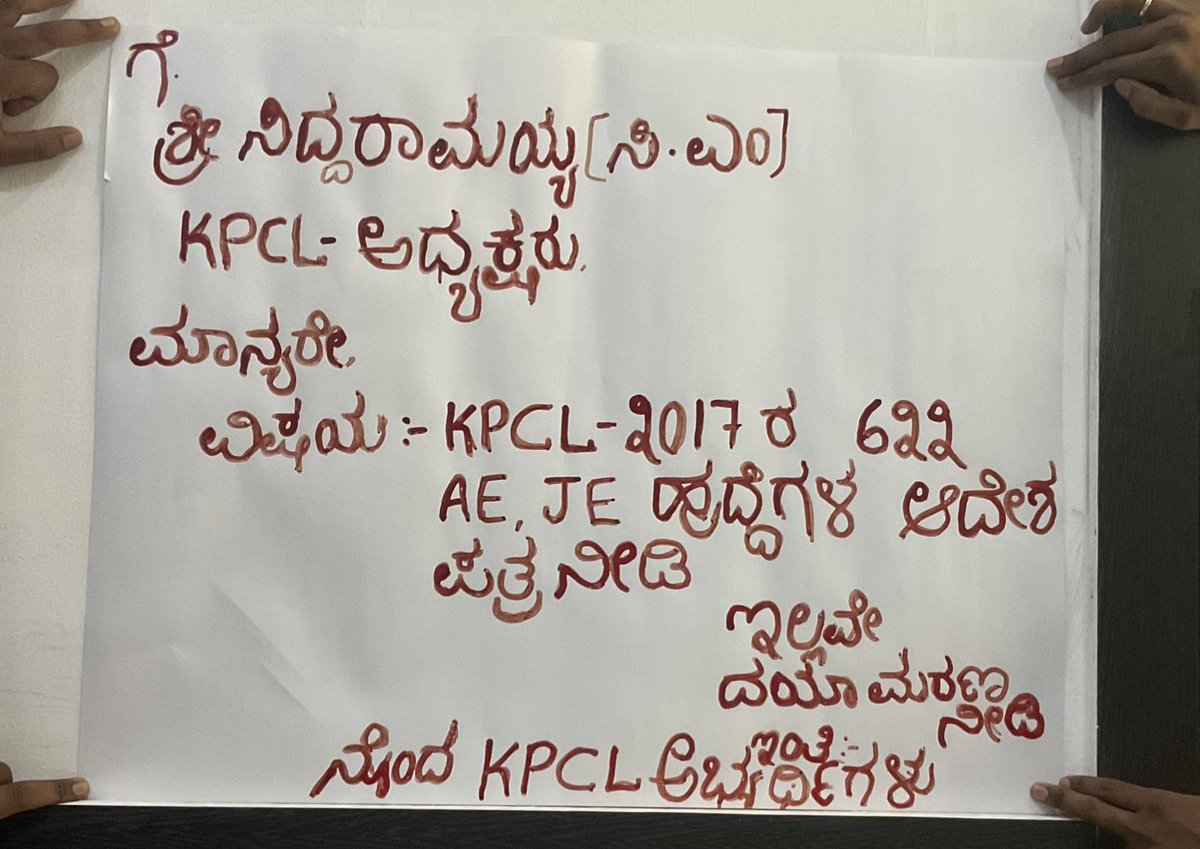 ಗೆ.
ಶ್ರೀ ಸಿದ್ದರಾಮಯ್ಯ [ಸಿ.ಎಂ]
KPCL- ಅಧ್ಯಕ್ಷರು.
ಮಾನ್ಯರೇ,
ವಿಷಯ :- KPCL-2017 ರ 622
AE, JE ಹುದ್ದೆಗಳ ಆದೇಶ
ಪತ್ರ ನೀಡಿ
ಇಲ್ಲವೇ
ದಯಾ ಮರಣ
ನೀಡಿ
ಇಂತಿ:-
ನೊಂದ KPCL ಅಭ್ಯರ್ಥಿಗಳು